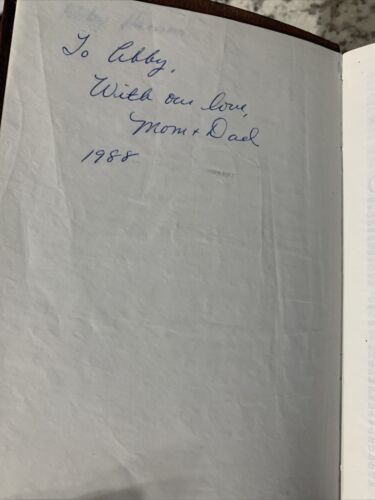 To Abby,
With our love,
Mom + Dad
1988